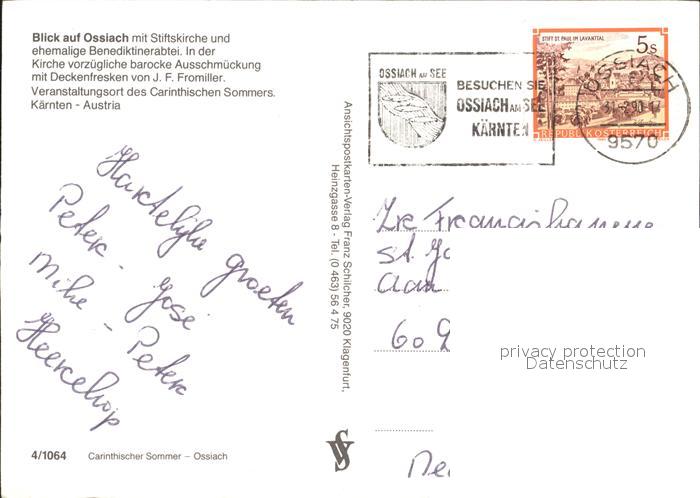 Blick auf Ossiach mit Stiftskirche und
ehemalige Benediktinerabtei. In der
Kirche vorzügliche barocke Ausschmückung
mit Deckenfresken von J. F. Fromiller.
Veranstaltungsort des Carinthischen Sommers.
Kärnten - Austria
Hartelijke groeten
Peter - José
Mike - Peter
4/1064 Carinthischer Sommer – Ossiach
Ansichtspostkarten-Verlag Franz Schilcher, 9020 Klagenfurt,
Heinzgasse 8 - Tel. (0 463) 56 4 75
OSSIACH AM SEE
BESUCHEN SIE
OSSIACH AM SEE
KÄRNTEN
STIFT ST. PAUL IM LAVANTTAL
5 S
REPUBLIK ÖSTERREICH
OSSIACH
9570
St.
60
privacy protection
Datenschutz